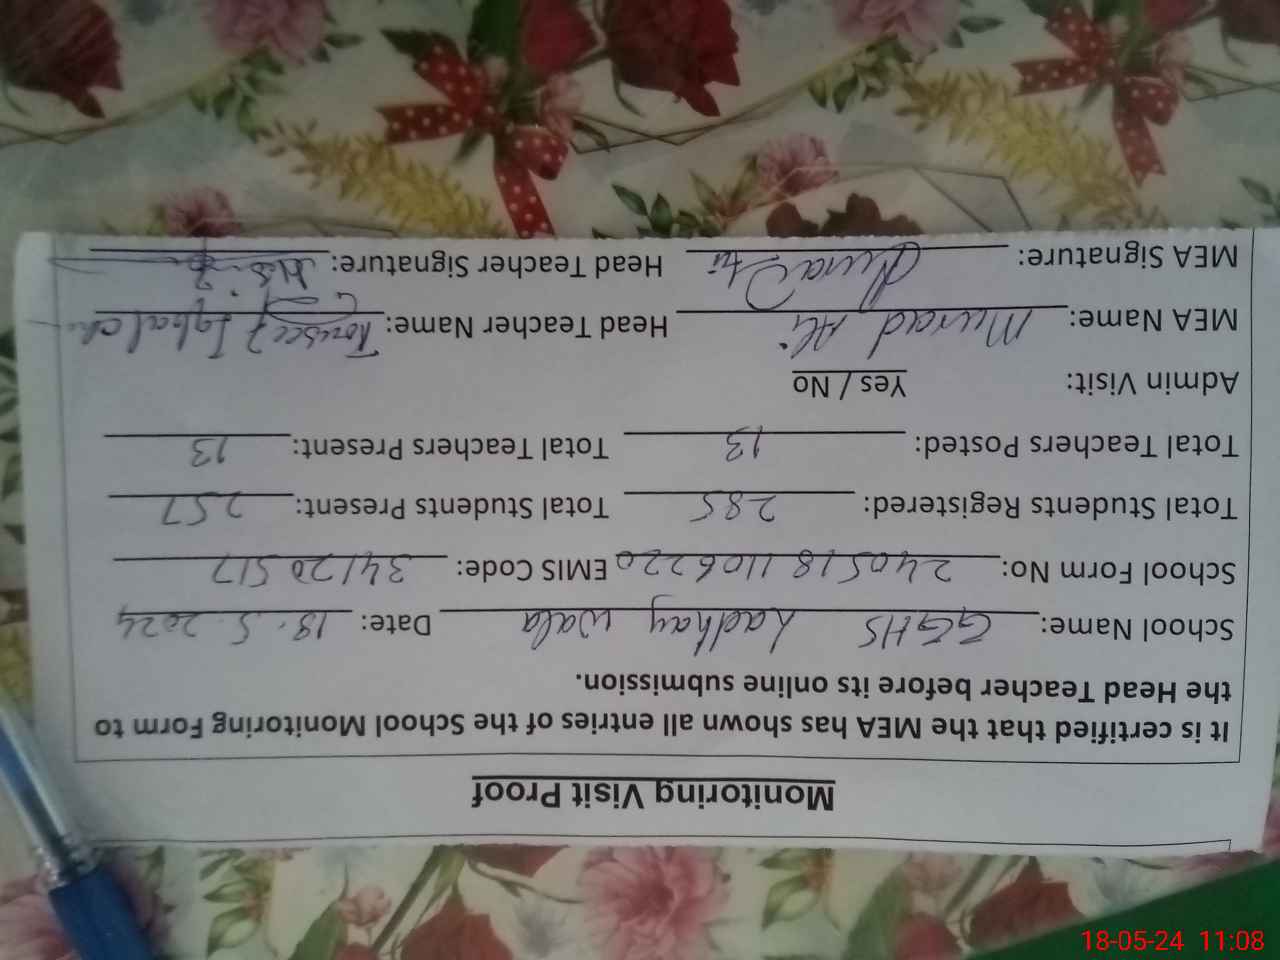 Monitoring Visit Proof
It is certified that the MEA has shown all entries of the School Monitoring Form to
the Head Teacher before its online submission.
School Name: GGHS Ladhay Wala Date: 18.5.2024
School Form No: 240518 1106220 EMIS Code: 34120517
Total Students Registered: 285 Total Students Present: 257
Total Teachers Posted: 13 Total Teachers Present: 13
Admin Visit: Yes / No
MEA Name: Murad Ali Head Teacher Name: Iqbal
MEA Signature: Head Teacher Signature:
18-05-24 11:08